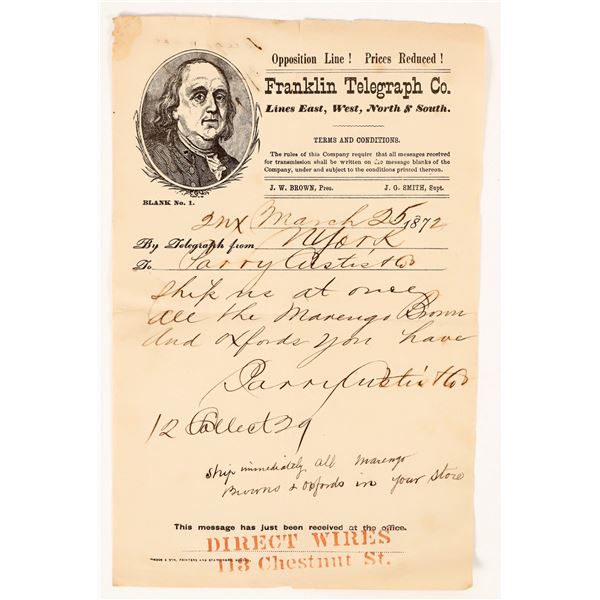 Opposition Line! Prices Reduced!
Franklin Telegraph Co.
Lines East, West, North & South.
TERMS AND CONDITIONS.
The rules of this Company require that all messages received
for transmission shall be written on the message blanks of the
Company, under and subject to the conditions printed thereon.
J. W. BROWN, Pres. J. G. SMITH, Supt.
BLANK No. 1.
March 25 1872
By Telegraph from N York
To Parry Custis & Co
Ship us at once
all the Marengo Brown
and oxfords you have
Parry Custis & Co
12 Collect 29
Ship immediately all Marengo
Browns & Oxfords in your store
This message has just been received at the office.
DIRECT WIRES
113 Chestnut St.
PRINTERS AND